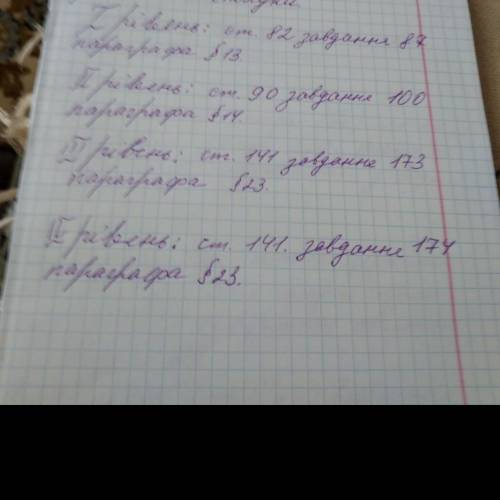 І рівянь: ст. 82 завдання 87
параграфа § 13.
ІІ рівянь: ст. 90 завдання 100
параграфа § 14.
ІІІ рівень: ст. 141 завдання 173
параграфа § 23.
рівянь: ст. 141. завдання 174
параграфа § 23.